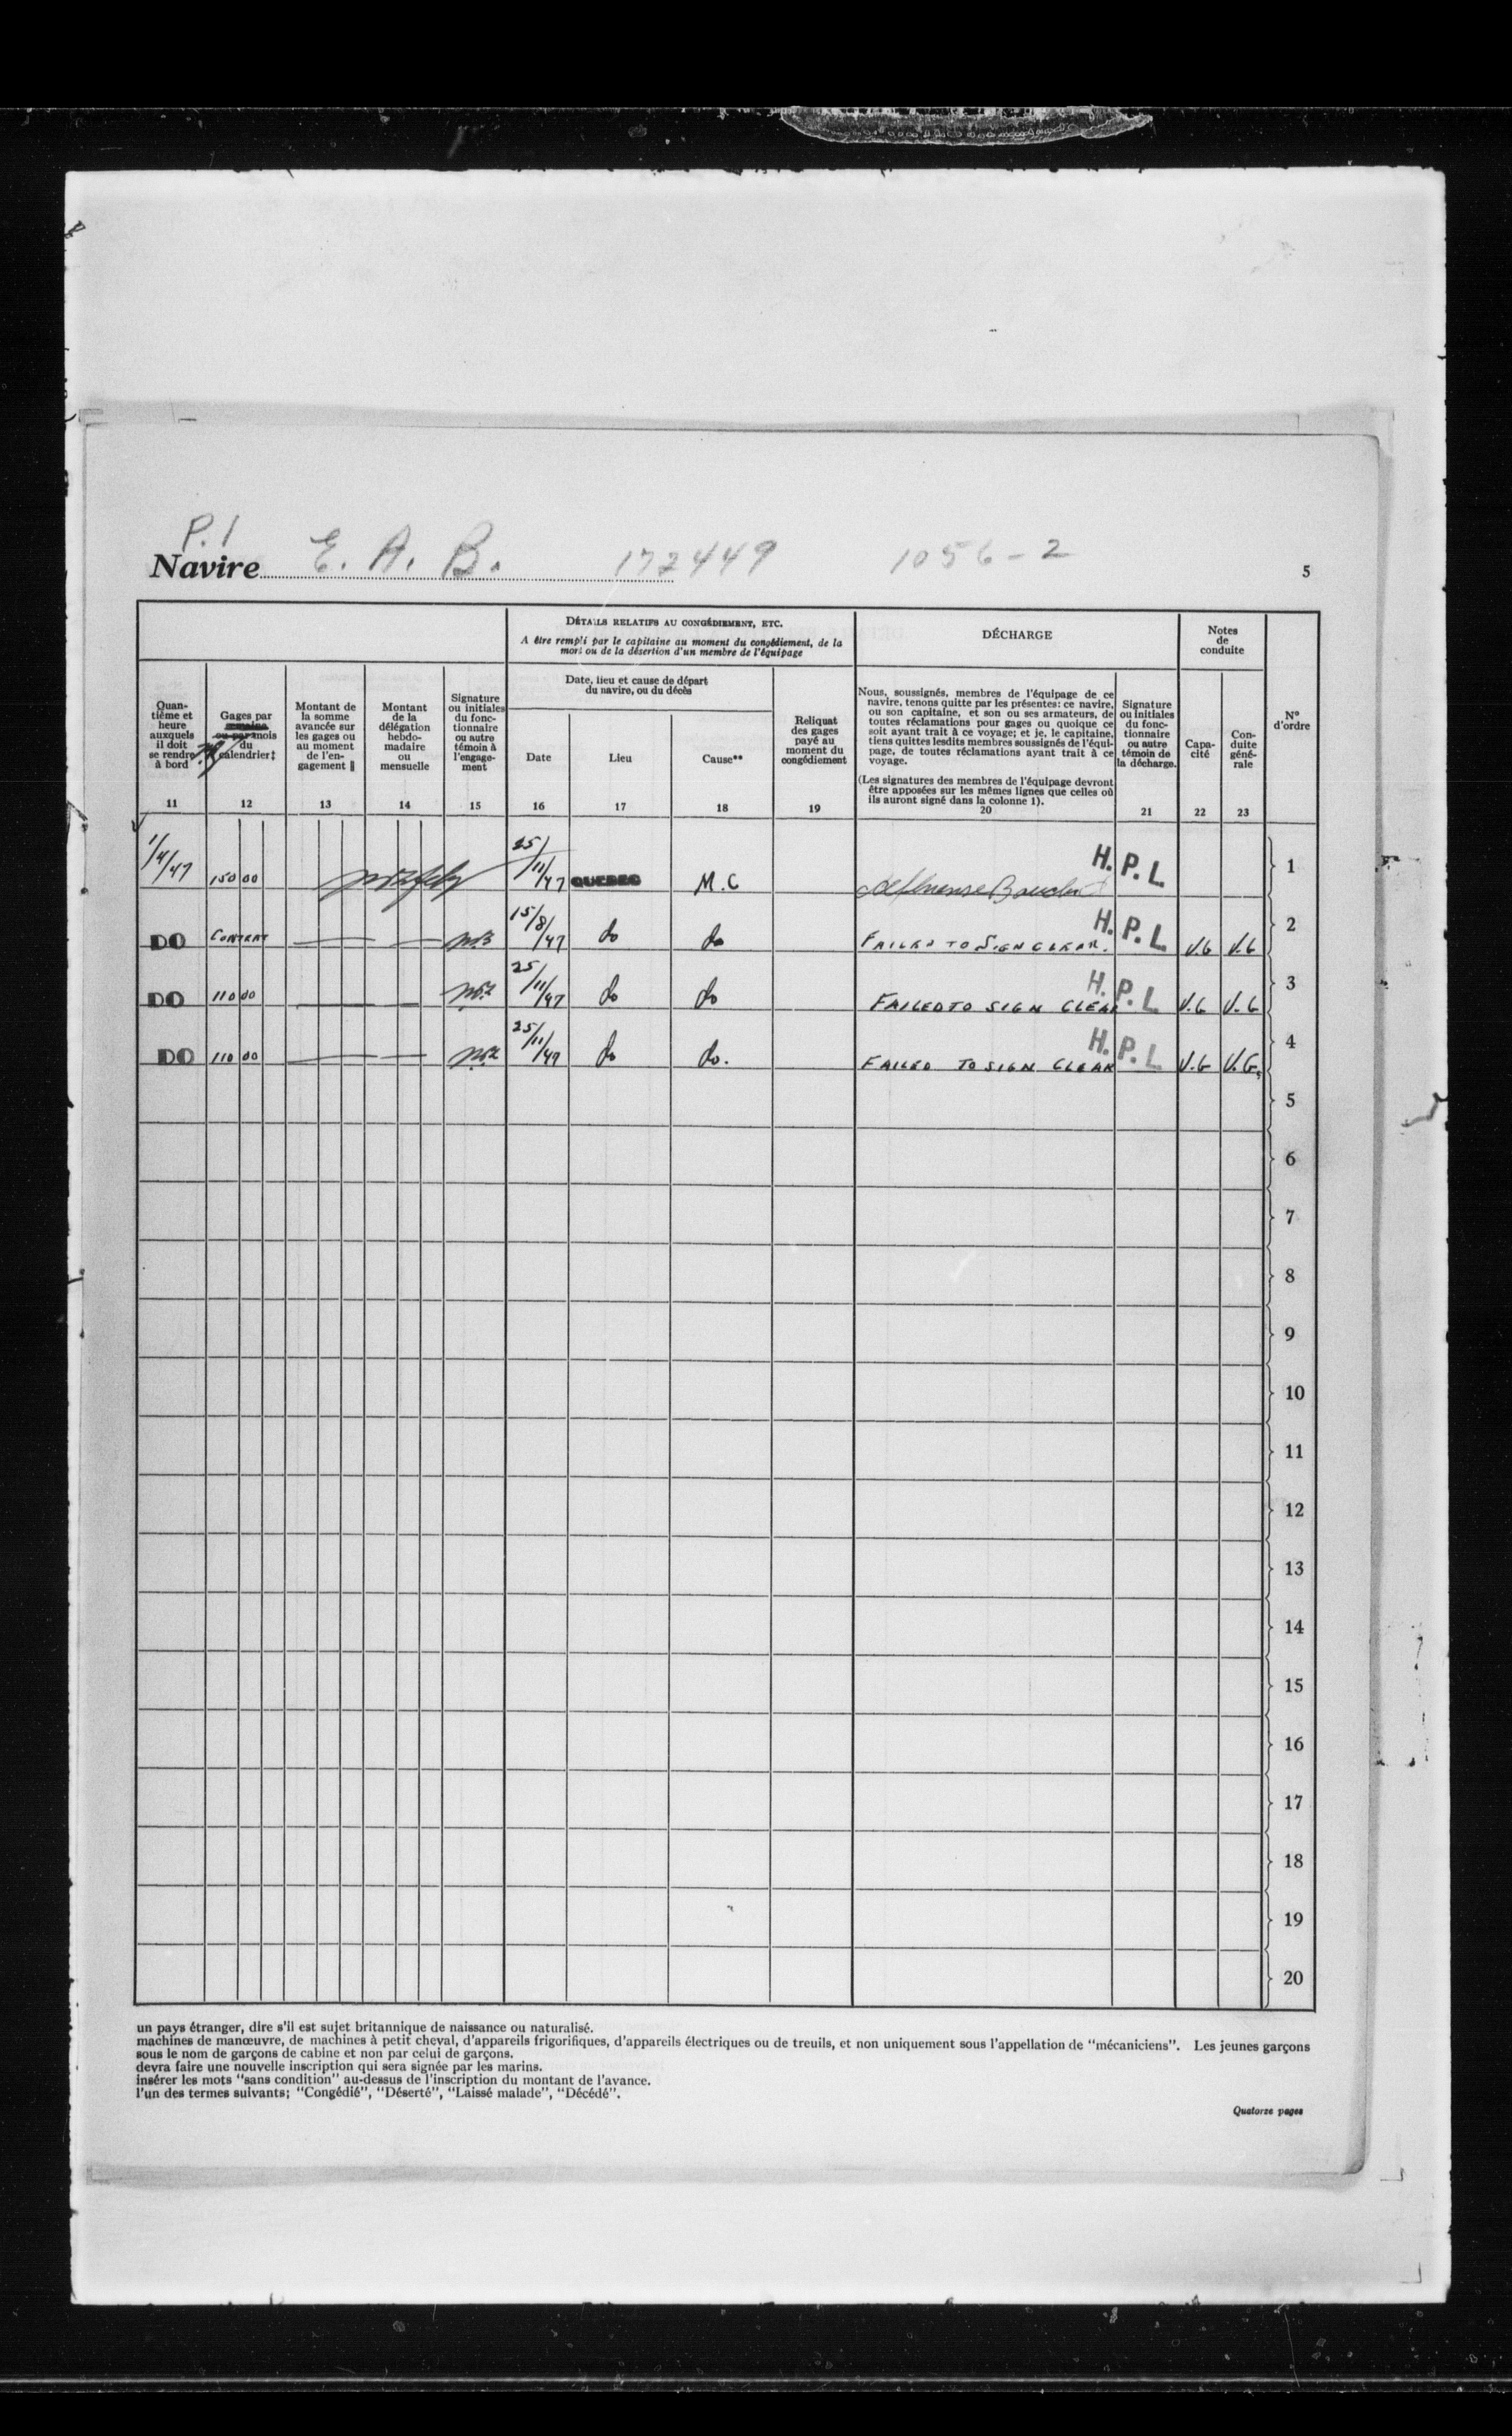 P.1
Navire E. A. B. 172449 1056-2
5
DÉTAILS RELATIFS AU CONGÉDIEMENT, ETC.
A être rempli par le capitaine au moment du congédiement, de la
mort ou de la désertion d'un membre de l'équipage
DÉCHARGE
Notes
de
conduite
Quan-
tième et
heure
auxquels
il doit
se rendre
à bord
11
Gages par
semaine
ou par mois
du
calendrier‡
12
Montant de
la somme
avancée sur
les gages ou
au moment
de l'en-
gagement ‖
13
Montant
de la
délégation
hebdo-
madaire
ou
mensuelle
14
Signature
ou initiales
du fonc-
tionnaire
ou autre
témoin à
l'engage-
ment
15
Date, lieu et cause de départ
du navire, ou du décès
Date
16
Lieu
17
Cause**
18
Reliquat
des gages
payé au
moment du
congédiement
19
Nous, soussignés, membres de l'équipage de ce
navire, tenons quitte par les présentes: ce navire,
ou son capitaine, et son ou ses armateurs, de
toutes réclamations pour gages ou quoique ce
soit ayant trait à ce voyage; et je, le capitaine,
tiens quittes lesdits membres soussignés de l'équi-
page, de toutes réclamations ayant trait à ce
voyage.
(Les signatures des membres de l'équipage devront
être apposées sur les mêmes lignes que celles où
ils auront signé dans la colonne 1).
20
Signature
ou initiales
du fonc-
tionnaire
ou autre
témoin de
la décharge.
21
Capa-
cité
22
Con-
duite
géné-
rale
23
N°
d'ordre
1/4/47 150 00 25/11/47 QUEBEC M.C H.P.L. 1
DO CONTRAT 15/8/47 do do FAILED TO SIGN CLEAR. H.P.L V.G V.G 2
DO 110 00 25/11/47 do do FAILED TO SIGN CLEAR H.P.L V.G V.G 3
DO 110 00 25/11/47 do do. FAILED TO SIGN CLEAR H.P.L V.G V.G. 4
5
6
7
8
9
10
11
12
13
14
15
16
17
18
19
20
un pays étranger, dire s'il est sujet britannique de naissance ou naturalisé.
machines de manœuvre, de machines à petit cheval, d'appareils frigorifiques, d'appareils électriques ou de treuils, et non uniquement sous l'appellation de "mécaniciens". Les jeunes garçons
sous le nom de garçons de cabine et non par celui de garçons.
devra faire une nouvelle inscription qui sera signée par les marins.
insérer les mots "sans condition" au-dessus de l'inscription du montant de l'avance.
l'un des termes suivants; "Congédié", "Déserté", "Laissé malade", "Décédé".
Quatorze pages